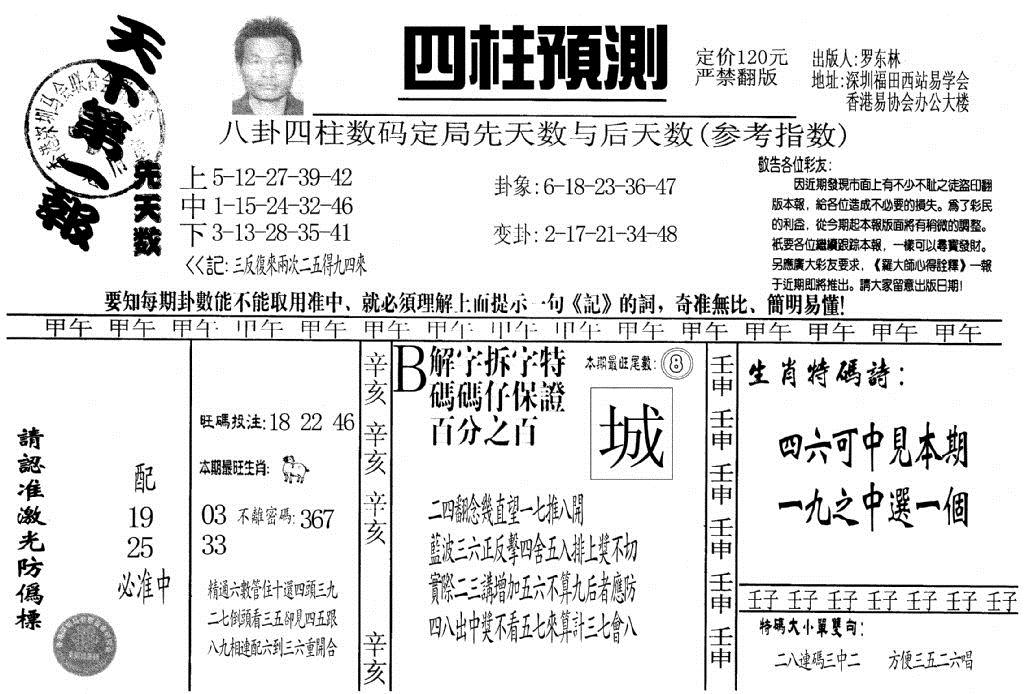 天下第一報
四柱預測
定价120元
严禁翻版
出版人:罗东林
地址:深圳福田西站易学会
香港易协会办公大楼
八卦四柱数码定局先天数与后天数(参考指数)
先天数
上 5-12-27-39-42
中 1-15-24-32-46
下 3-13-28-35-41
<<記: 三反復來兩次二五得九四來
卦象: 6-18-23-36-47
变卦: 2-17-21-34-48
敬告各位彩友:
因近期發現市面上有不少不耻之徒盜印翻
版本報，給各位造成不必要的損失。爲了彩民
的利益，從今期起本報版面將有稍微的調整。
衹要各位繼續跟踪本報，一樣可以尋寶發財。
另應廣大彩友要求，《羅大師心得詮釋》一報
于近期即將推出。請大家留意出版日期!
要知每期卦數能不能取用准中、就必須理解上面提示一句《記》的詞，奇准無比、簡明易懂!
甲午 甲午 甲午 甲午 甲午 甲午 甲午 甲午 甲午 甲午 甲午 甲午 甲午 甲午 甲午
請認准激光防僞標
配
19
25
必准中
旺碼投注: 18 22 46
本期最旺生肖:
03 不離密碼: 367
33
精通六數管住十選四頭三九
二七倒頭看三五卻見四五跟
八九相連配六到三六重開合
辛亥
辛亥
辛亥
辛亥
B 解字拆字特
碼碼仔保證
百分之百
本期最旺尾數: 8
城
二四翻念幾直望一七推八開
藍波三六正反擊四舍五入排上獎不切
實際二三講增加五六不算九后者應防
四八出中獎不看五七來算計三七會八
壬申
壬申
壬申
壬申
壬申
壬申
生肖特碼詩:
四六可中見本期
一九之中選一個
壬子 壬子 壬子 壬子 壬子 壬子 壬子
特碼大小單雙句:
二八連碼三中二 方便三五二六唱